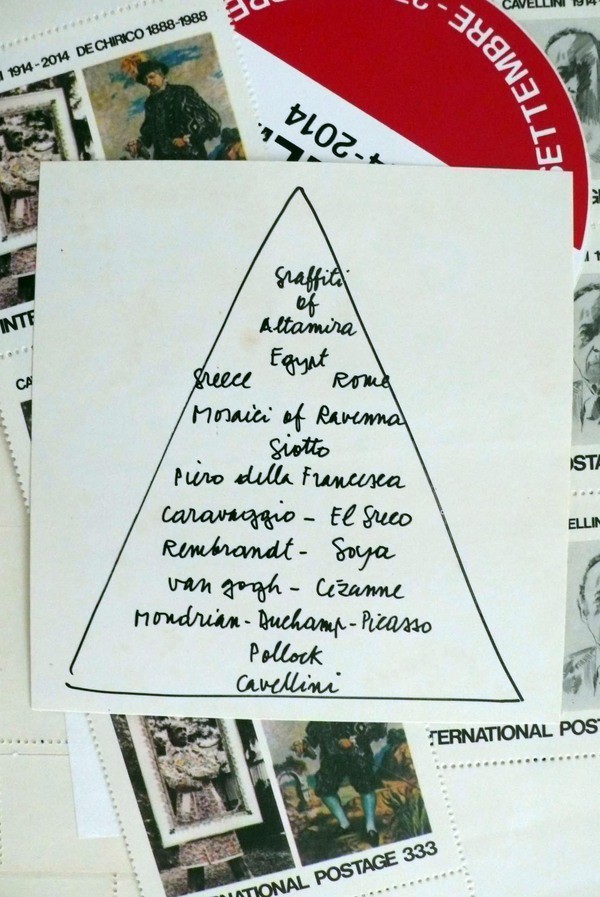 I 1914-2014 DE CHIRICO 1888-1988
SETTEMBRE - 27
CAVELLINI 1914-
4-2014
Graffiti
of
Altamira
Egypt
Greece Rome
Mosaici of Ravenna
Giotto
Piero della Francesca
Caravaggio - El Greco
Rembrandt - Goya
van gogh - Cézanne
Mondrian - Duchamp - Picasso
Pollock
Cavellini
INTE
CA
OSTA
ELLIN
TERNATIONAL POST
RNATIONAL POSTAGE 333